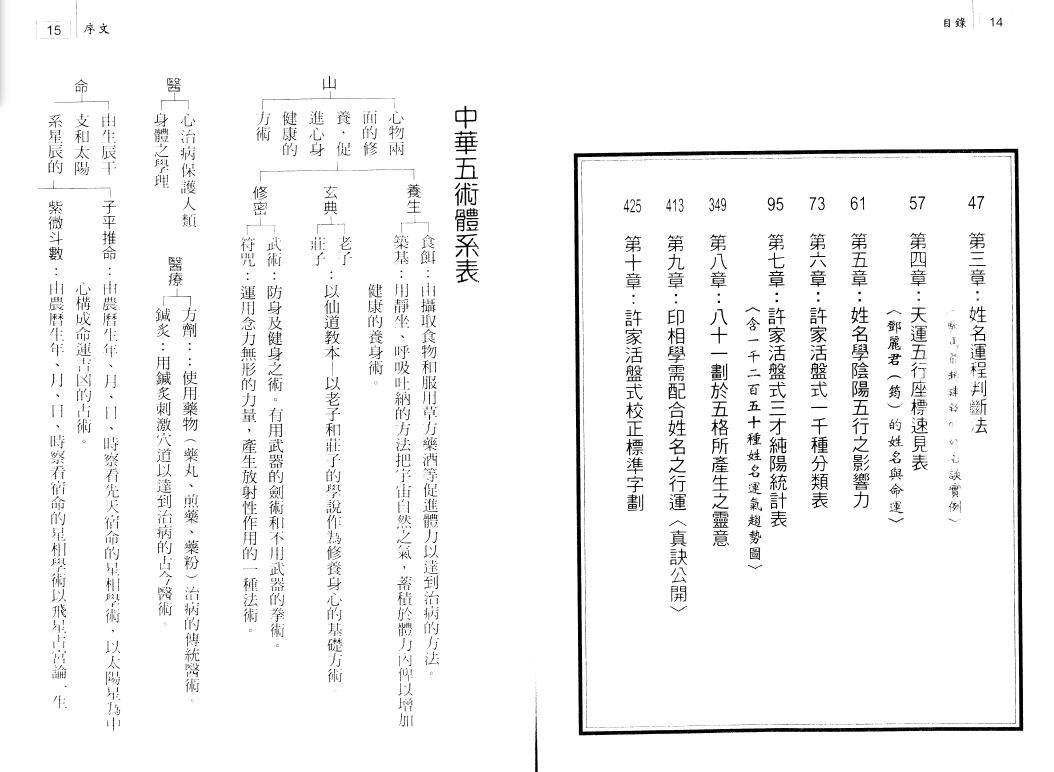 目錄 14
47 第三章：姓名運程判斷法
談實例〉
57 第四章：天運五行座標速見表
〈鄧麗君（筠）的姓名與命運〉
61 第五章：姓名學陰陽五行之影響力
73 第六章：許家活盤式一千種分類表
95 第七章：許家活盤式三才純陽統計表
〈含一千二百五十種姓名運氣趨勢圖〉
349 第八章：八十一劃於五格所產生之靈意
413 第九章：印相學需配合姓名之行運〈真訣公開〉
425 第十章：許家活盤式校正標準字劃
15 序文
中華五術體系表
山
心物兩
面的修
養，促
進心身
健康的
方術
養生
食餌：由攝取食物和服用草方藥酒等促進體力以達到治病的方法。
築基：用靜坐、呼吸吐納的方法把宇宙自然之氣，蓄積於體力內俾以增加
健康的養身術。
玄典
老子
莊子
：以仙道教本—以老子和莊子的學說作為修養身心的基礎方術。
修密
武術：防身及健身之術。有用武器的劍術和不用武器的拳術。
符咒：運用念力無形的力量，產生放射性作用的一種法術。
醫
心治病保護人類
身體之學理
醫療
方劑：：使用藥物（藥丸、煎藥、藥粉）治病的傳統醫術。
鍼炙：用鍼炙刺激穴道以達到治病的古今醫術。
命
由生辰干
支和太陽
系星辰的
子平推命：由農曆生年、月、日、時察看先天宿命的星相學術，以太陽星為中
心構成命運吉凶的占術。
紫微斗數：由農曆生年、月、日、時察看宿命的星相學術以飛星占宮論一生